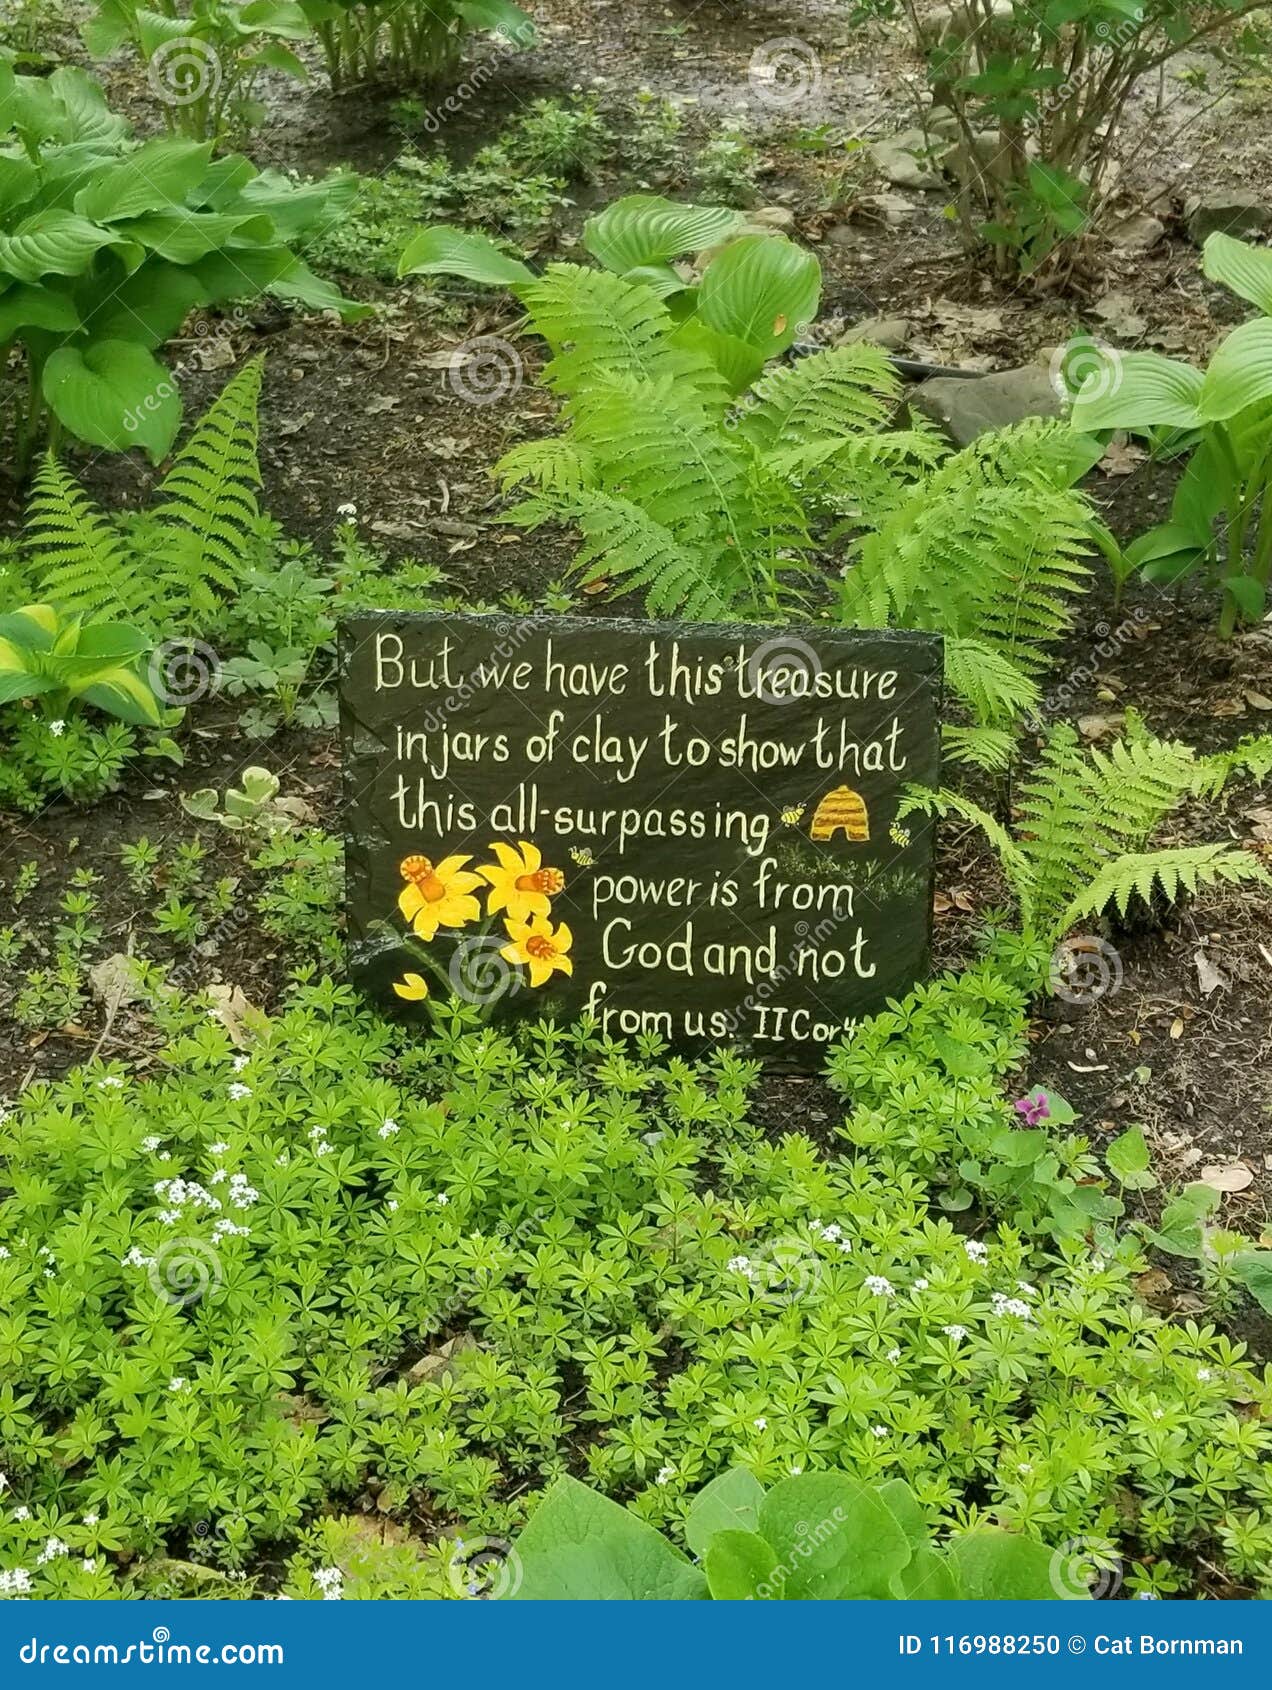 But we have this treasure
in jars of clay to show that
this all-surpassing
power is from
God and not
from us. II Cor 4:
dreamstime.com
ID 116988250 © Cat Bornman